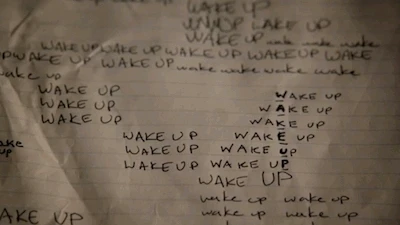 WAKE UP
WAKE UP
WAKE UP wake wake wake
WAKE UP WAKE UP WAKE UP WAKE UP WAKE
WAKE UP WAKE UP wake wake wake wake
wake up
WAKE UP WAKE UP
WAKE UP WAKE UP
WAKE UP WAKE UP
WAKE UP WAKE UP
wake up
WAKE UP WAKE UP
WAKE UP WAKE UP
WAKE UP
wake up wake up
WAKE UP wake up wake up